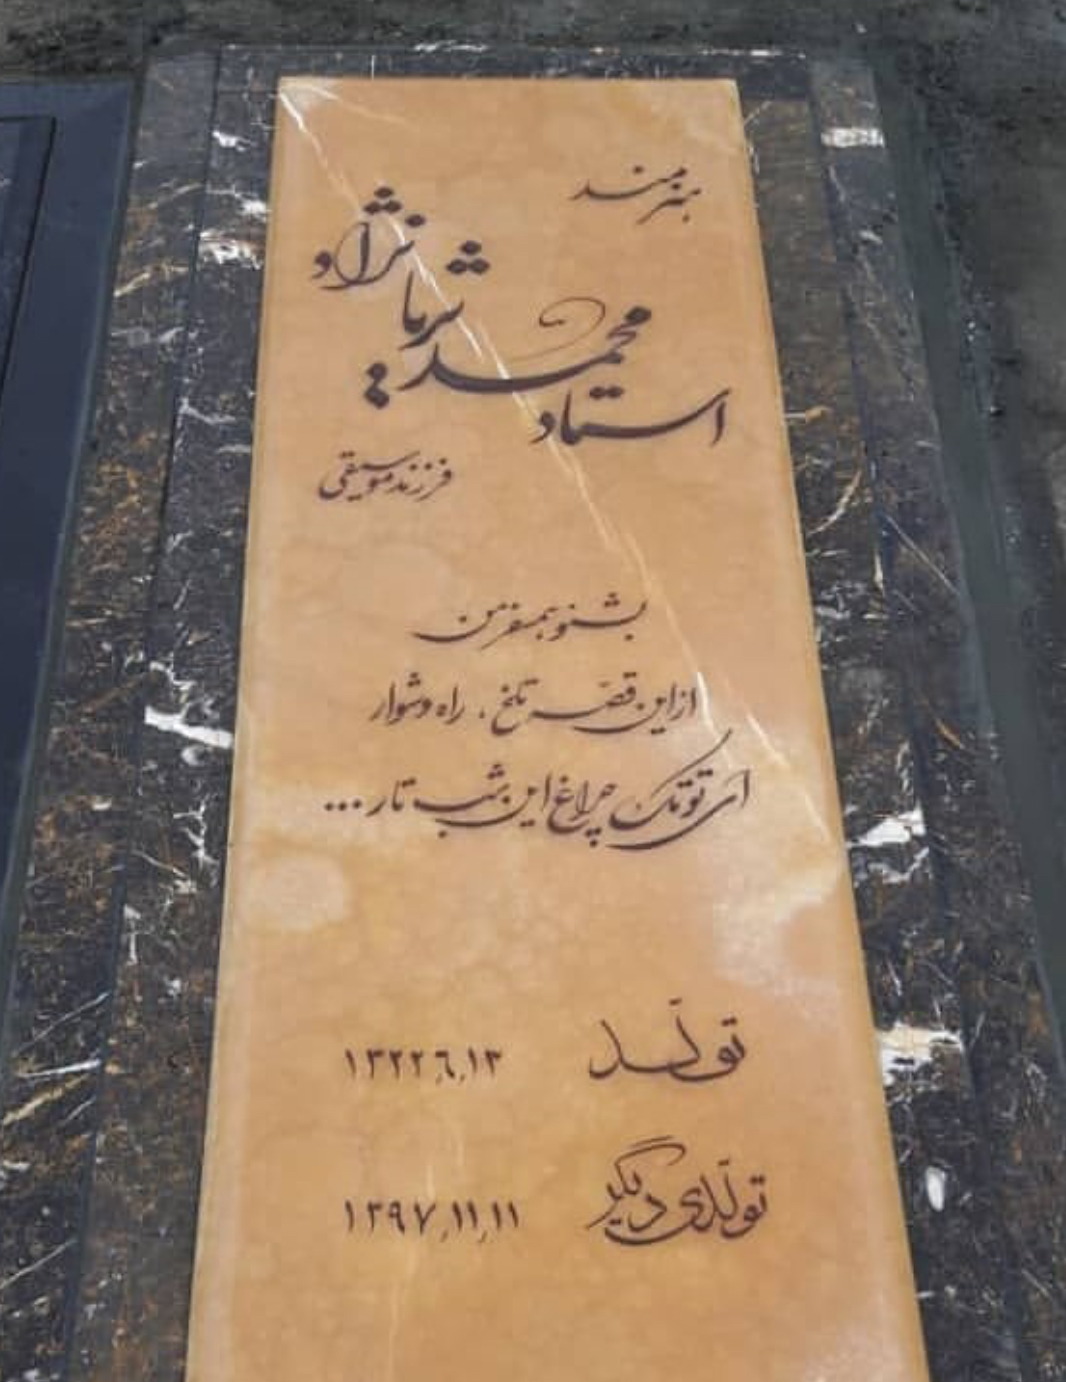 هنرمند
استاد محمد ثریانژاد
فرزند موسیقی
بشنو همسفر من
از این قصّه تلخ ، راه دشوار
ای تو تک چراغ این شب تار ...
تولّد ۱۳۲۲٫٦٫۱۳
تولّدی دیگر ۱۳۹۷٫۱۱٫۱۱